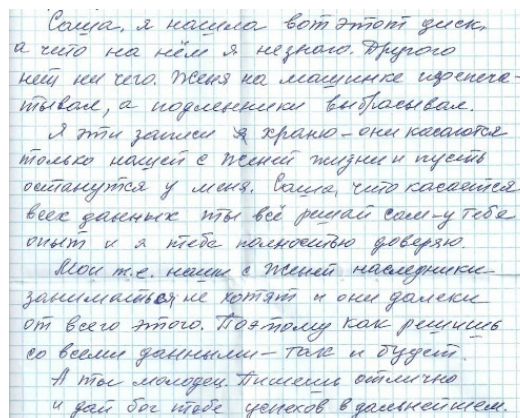 Саша, я нашла вот этот диск,
а что на нём я незнаю. Другого
нет ни чего. Женя на машинке перепеча-
тывал, а подлинники выбрасывал.
Я эти записи я храню – они касаются
только нашей с Женей жизни и пусть
останутся у меня. Саша, что касается
всех данных ты всё решай сам – у тебя
опыт и я тебе полностью доверяю.
Мои т.е. наши с Женей наследники
заниматься не хотят и они далеки
от всего этого. Поэтому как решишь
со всеми данными – так и будет.
А ты молодец. Пишешь отлично
и дай бог тебе успехов в дальнейшем.